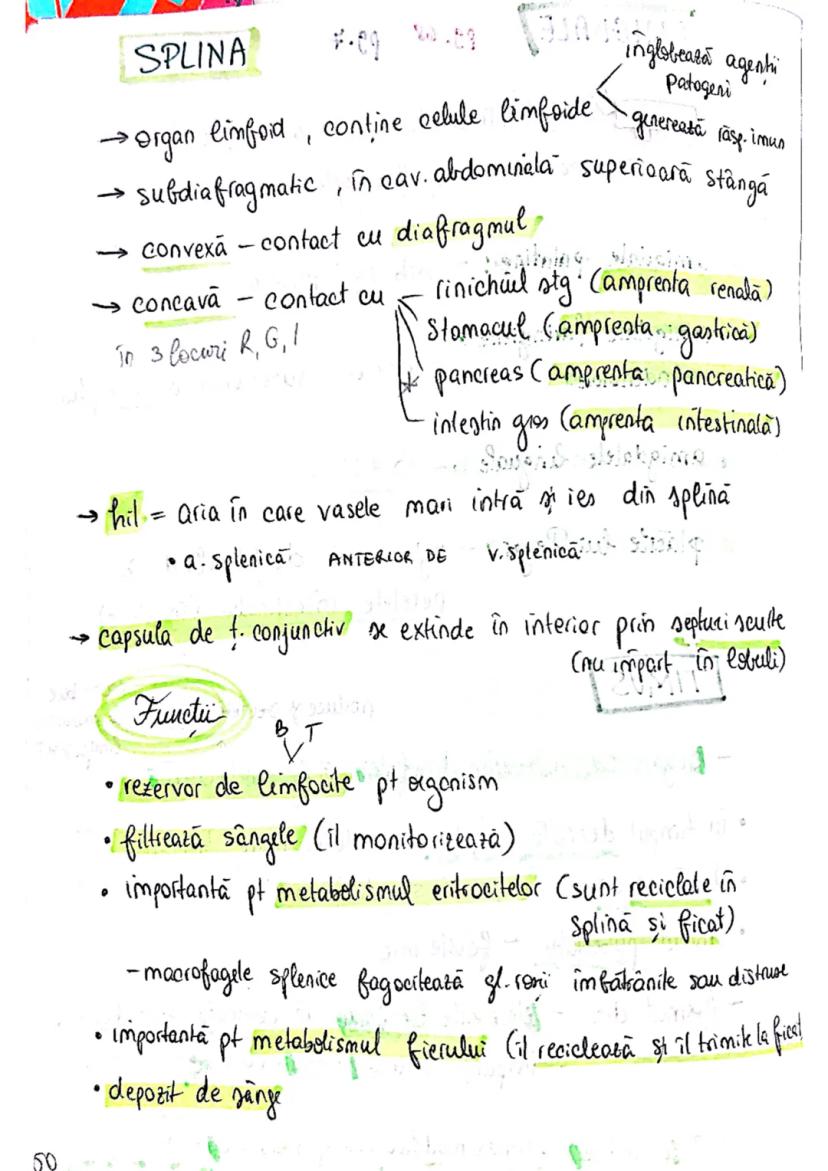 SPLINA
înglobează agenții
patogeni
→ organ limfoid, conține celule limfoide
generează răsp. imun
→ subdiafragmatic, în cav. abdominală superioară stângă
→ convexă - contact cu diafragmul
→ concavă - contact cu rinichiul stg. (amprenta renală)
în 3 locuri R, G, I
stomacul (amprenta gastrică)
* pancreas (amprenta pancreatică)
intestin gros (amprenta intestinală)
→ hil = aria în care vasele mari intră și ies din splină
• a. splenică ANTERIOR DE v. splenică
→ capsula de ț. conjunctiv se extinde în interior prin septuri scurte
(nu împart în lobuli)
Funcții
B T
• rezervor de limfocite pt organism
• filtrează sângele (îl monitorizează)
• importantă pt metabolismul eritrocitelor (sunt reciclate în
splină și ficat)
- macrofagele splenice fagocitează gl. roșii îmbătrânite sau distruse
• importantă pt metabolismul fierului (îl reciclează și îl trimite la ficat
• depozit de sânge
50